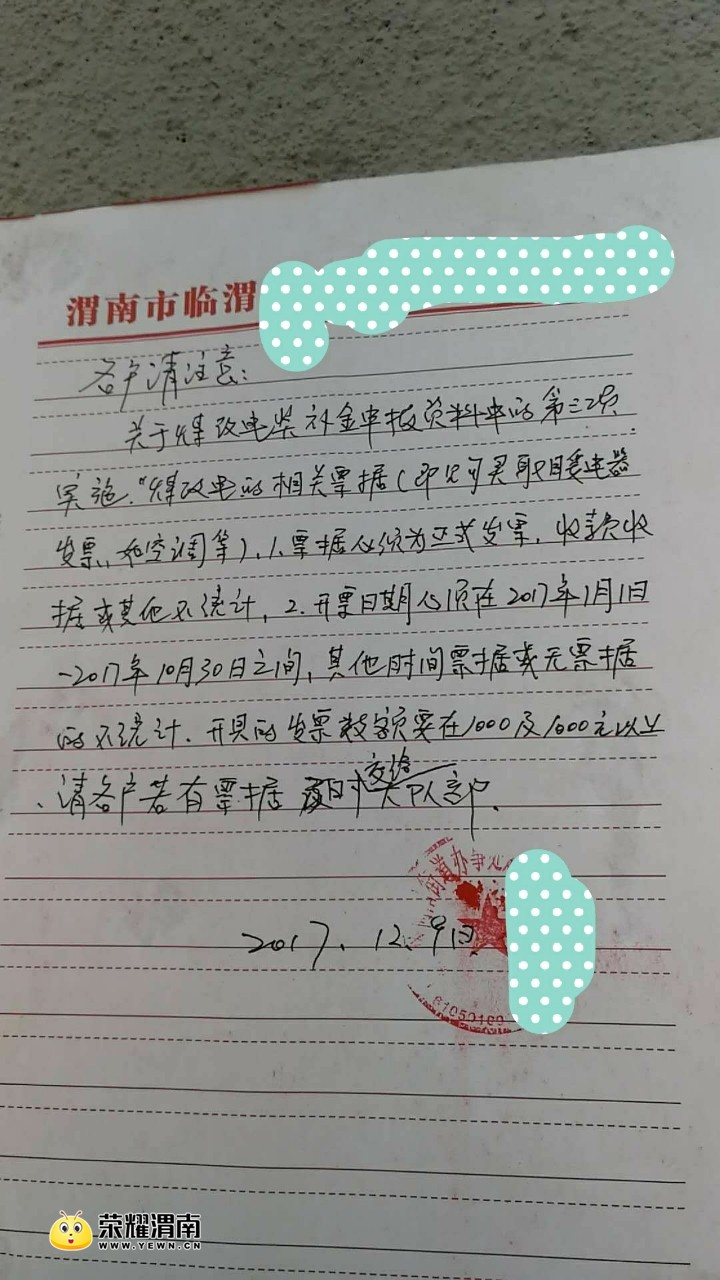 渭南市临渭
各户请注意:
关于煤改电奖补金申报资料中的第三项
实施.“煤改电的相关票据(即 买取暖电器
发票,如空调等).1.票据必须为正式发票,收款收
据或其他不统计,2.开票日期必须在2017年1月1日
-2017年10月30日之间,其他时间票据或无票据
的不统计.开具的发票数额要在1000及1000元以上
、请各户若有票据 时交给大队部.
2017.12.9日
61050100
荣耀渭南
WWW.YEWN.CN